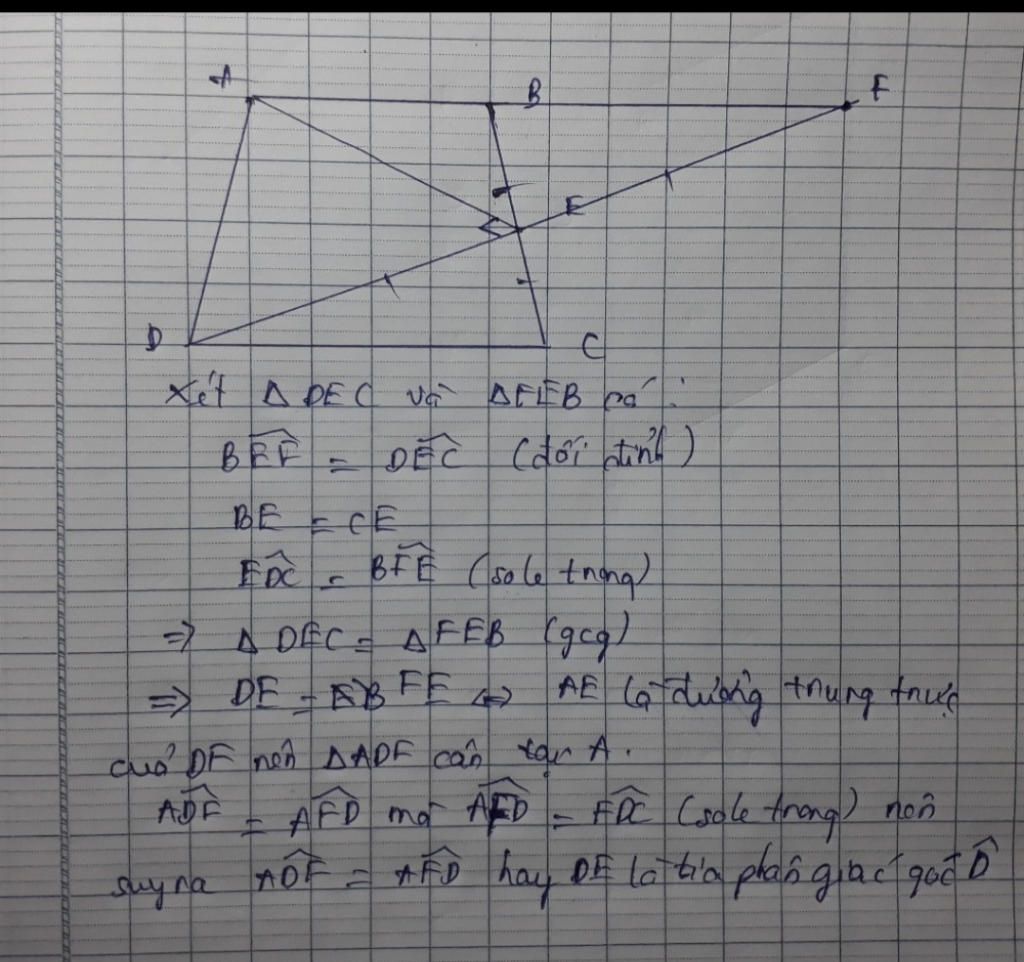 A B F
E
D C
Xét Δ DEC và ΔFEB có :
BÊF = DÊC (đối đỉnh)
BE = CE
ED̂C = BF̂E (so le trong)
=> Δ DEC = Δ FEB (gcg)
=> DE = FE <=> AE là đường trung trực
của DF nên ΔADF cân tại A .
AD̂F = AF̂D mà AF̂D = FD̂C (so le trong) nên
suy ra AD̂F = AF̂D hay DE là tia phân giác góc D̂